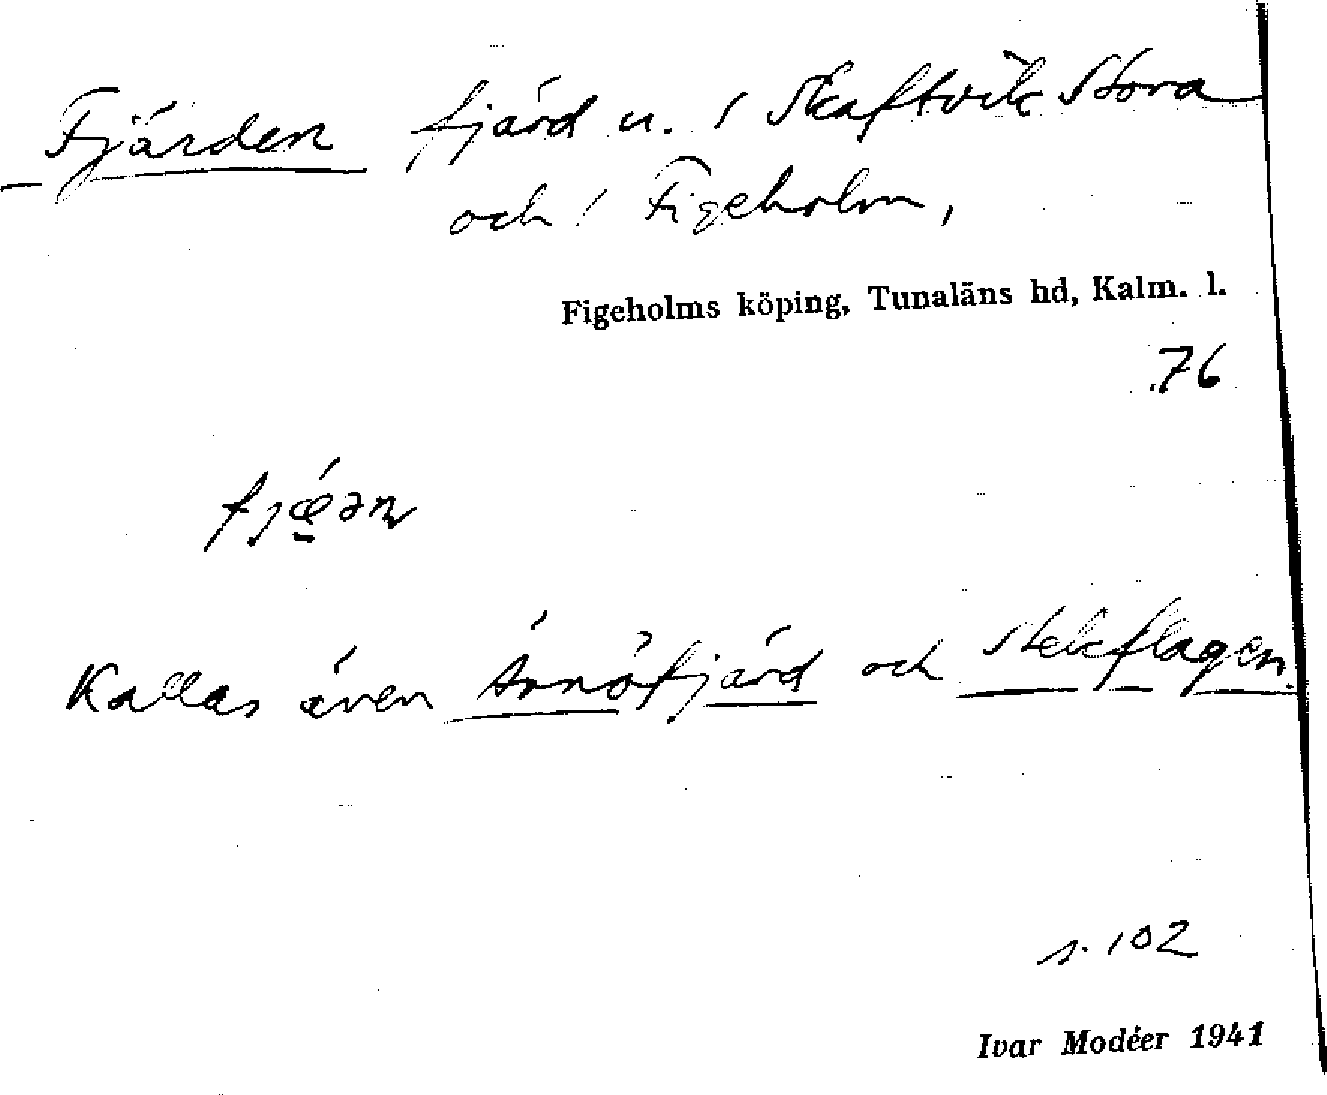 Fjärden fjärd u. / Skaftvik Stora
och / Figeholm,
Figeholms köping, Tunaläns hd, Kalm. l.
76
Kallas även Ärnöfjärd och
s. 102
Ivar Modéer 1941